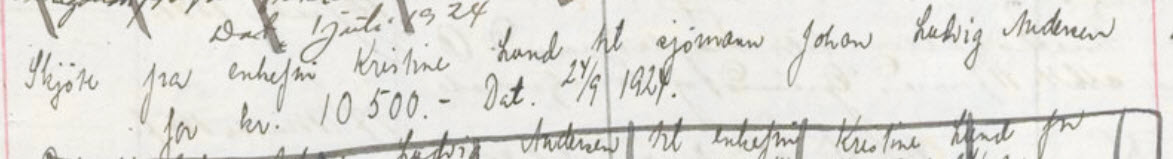 Dat. 1 juli 1924
Skjöte fra enkefru Kristine Lund til sjömann Johan Ludvig Andersen
for kr. 10 500.- Dat. 24/9 1924.
Ludvig Andersen til enkefru Kristine Lund for